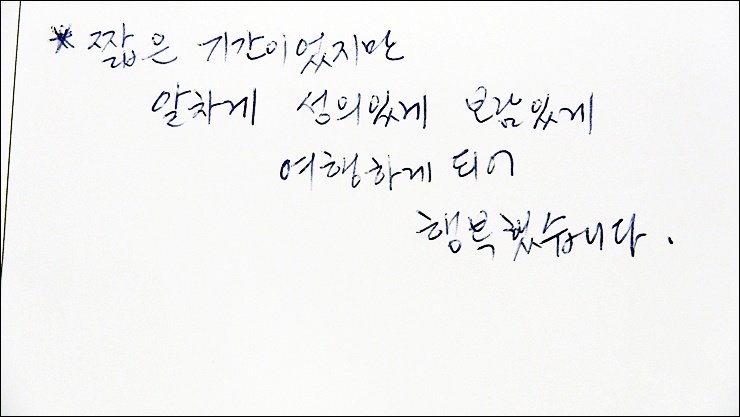 * 짧은 기간이었지만
알차게 성의있게 보람있게
여행하게 되어
행복했습니다.